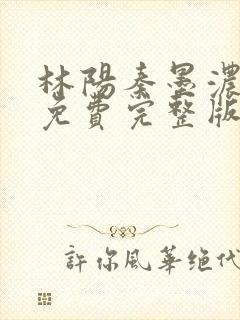 林陽秦墨濃
免費完整版
許你風華絕代